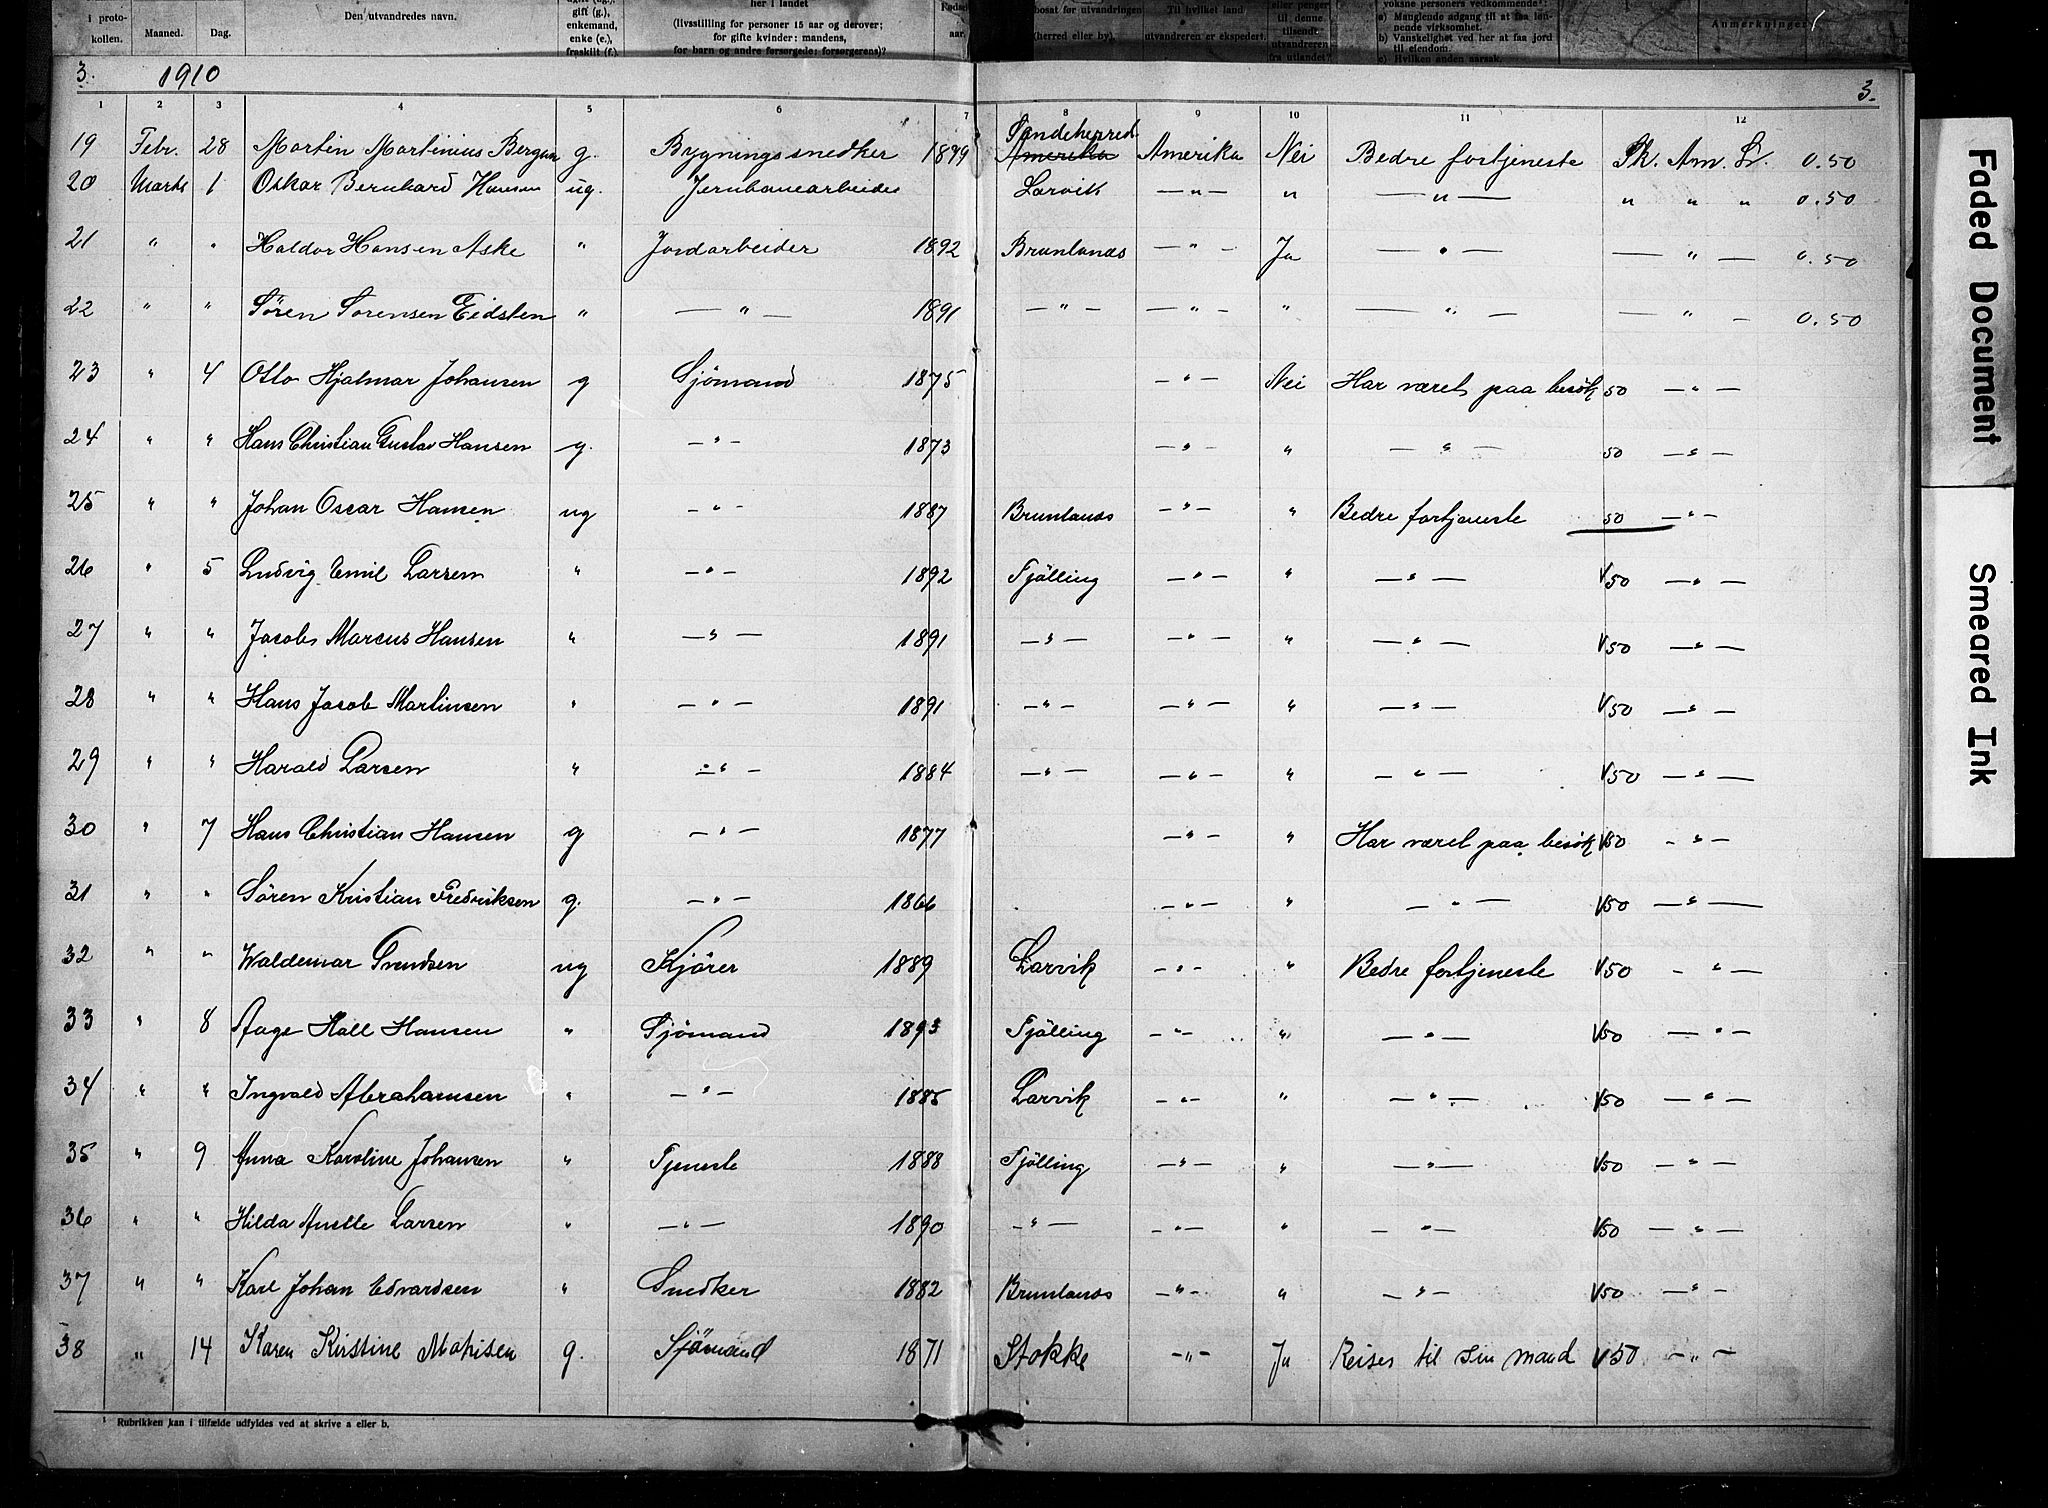 i proto-
kollen.
Maaned.
Dag.
Den utvandredes navn.
gift (g.),
enkemand,
enke (e.),
fraskilt (f.)
her i landet
(livsstilling for personer 15 aar og derover;
for gifte kvinder: mandens,
for barn og andre forsørgede; forsørgerens)?
aar.
bosat før utvandringen
(herred eller by).
Til hvilket land
utvandreren er ekspedert.
eller penger
til denne
tilsendt
utvandreren
fra utlandet?
voksne personers vedkommende¹:
a) Manglende adgang til at faa løn-
nende virksomhet.
b) Vanskelighet ved her at faa jord
til eiendom.
c) Hvilken anden aarsak.
Anmerkninger.
3. 1910 3.
1 2 3 4 5 6 7 8 9 10 11 12
19 Febr. 28 Martin Martinius Bergan g. Bygningssnedker 1879 Sandeherred Amerika Amerika Nei Bedre fortjeneste Sk. Am. L. 0.50
20 Marts 1 Oskar Bernhard Hansen ug. Jernbanearbeider Larvik — " — " — " — " " " 0.50
21 " " Haldor Hansen Aske " Jordarbeider 1892 Brunlanes — " — Ja — " — — " — 0.50
22 " " Sören Sorensen Eidsten " — " — 1891 — " — — " — " — " — — " — 0.50
23 " 4 Otto Hjalmar Johansen g Sjömand 1875 — " — Nei Har været paa besök 50 — " —
24 " " Hans Christian Gustav Hansen g. — " — 1873 — " — " — " — 50 — " —
25 " " Johan Oscar Hansen ug — " — 1887 Brunlanes — " — " Bedre fortjeneste 50 — " —
26 " 5 Ludvig Emil Larsen " — " — 1892 Tjölling — " — " — " — V50 — " —
27 " " Jacob Marcus Hansen " — " — 1891 — " — — " — " — " — V50 — " —
28 " " Hans Jacob Martinsen " — " — 1891 — " — — " — " — " — V50 — " —
29 " " Harald Larsen " — " — 1884 — " — — " — " — " — V50 — " —
30 " 7 Hans Christian Hansen g — " — 1877 — " — " Har været paa besök V50 — " —
31 " " Sören Kristian Fredriksen g. — " — 1866 — " — " — " — V50 — " —
32 " " Waldemar Svendsen ug Kjörer 1889 Larvik — " — " Bedre fortjeneste V50 — " —
33 " 8 Aage Hall Hansen " Sjömand 1893 Tjölling — " — " — " — V50 — " —
34 " " Ingvald Abrahamsen " — " — 1885 Larvik — " — " — " — V50 — " —
35 " 9 Anna Karoline Johansen " Tjeneste 1888 Tjölling — " — " — " — V50 — " —
36 " " Hilda Larsen " — " — 1890 — " — — " — " — " — V50 — " —
37 " " Karl Johan Edvardsen " Snedker 1882 Brunlanes — " — " — " — V50 — " —
38 " 14 Karen Kirstine Matisen g. Sjömand 1871 Stokke — " — Ja Reiser til sin mand V50 — " —
¹ Rubrikken kan i tilfælde udfyldes ved at skrive a eller b.
Faded Document
Smeared Ink